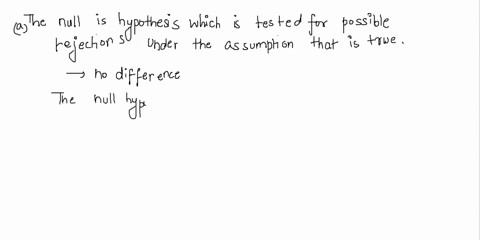 (a) The null is hypothesis which is tested for possible
rejections under the assumption that is true.
→ no difference
The null hyp